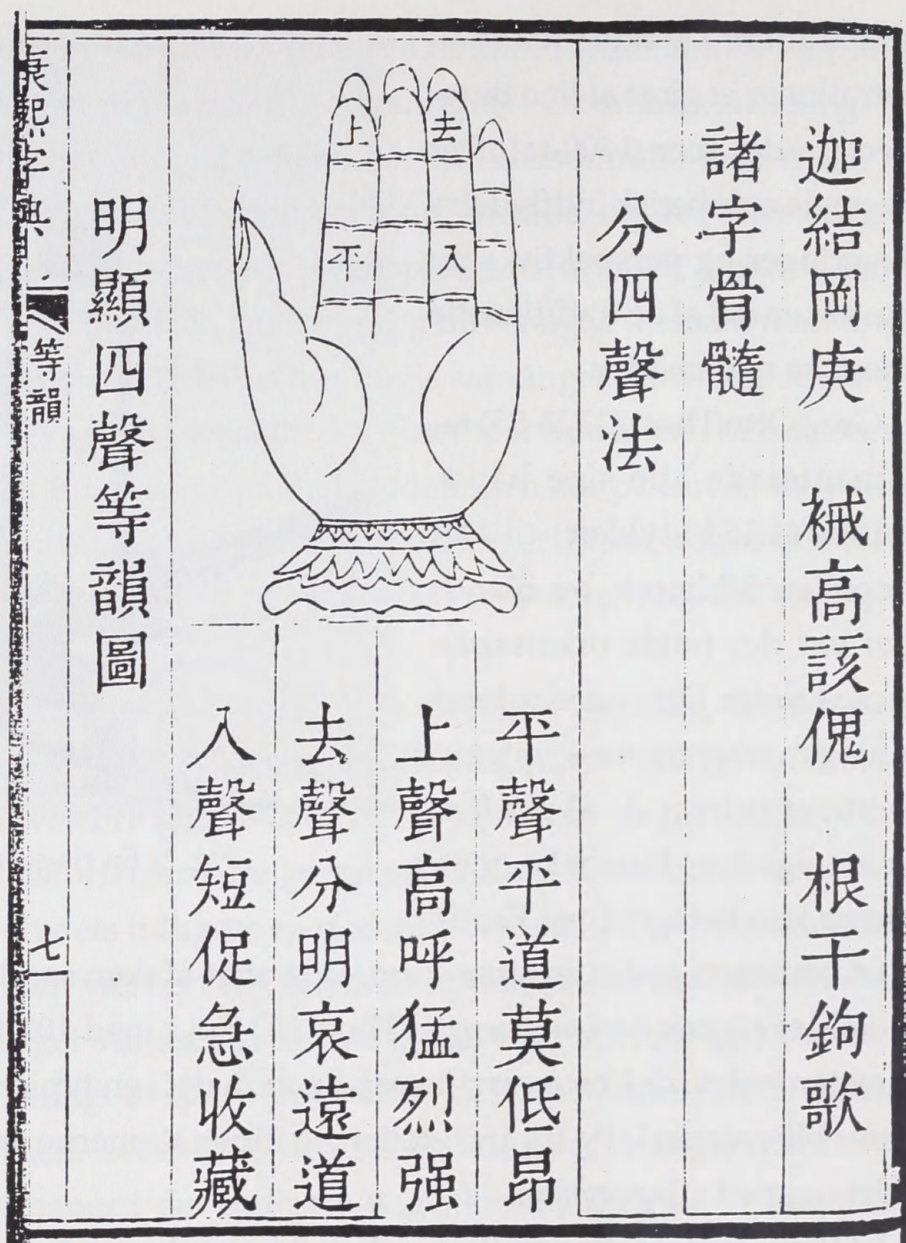 迦結岡庚 祴高該傀 根干鉤歌
諸字骨髓
分四聲法
去
上
平
平聲平道莫低昂
上聲高呼猛烈强
去聲分明哀遠道
入聲短促急收藏
明顯四聲等韻圖
康熙字典 等韻 七